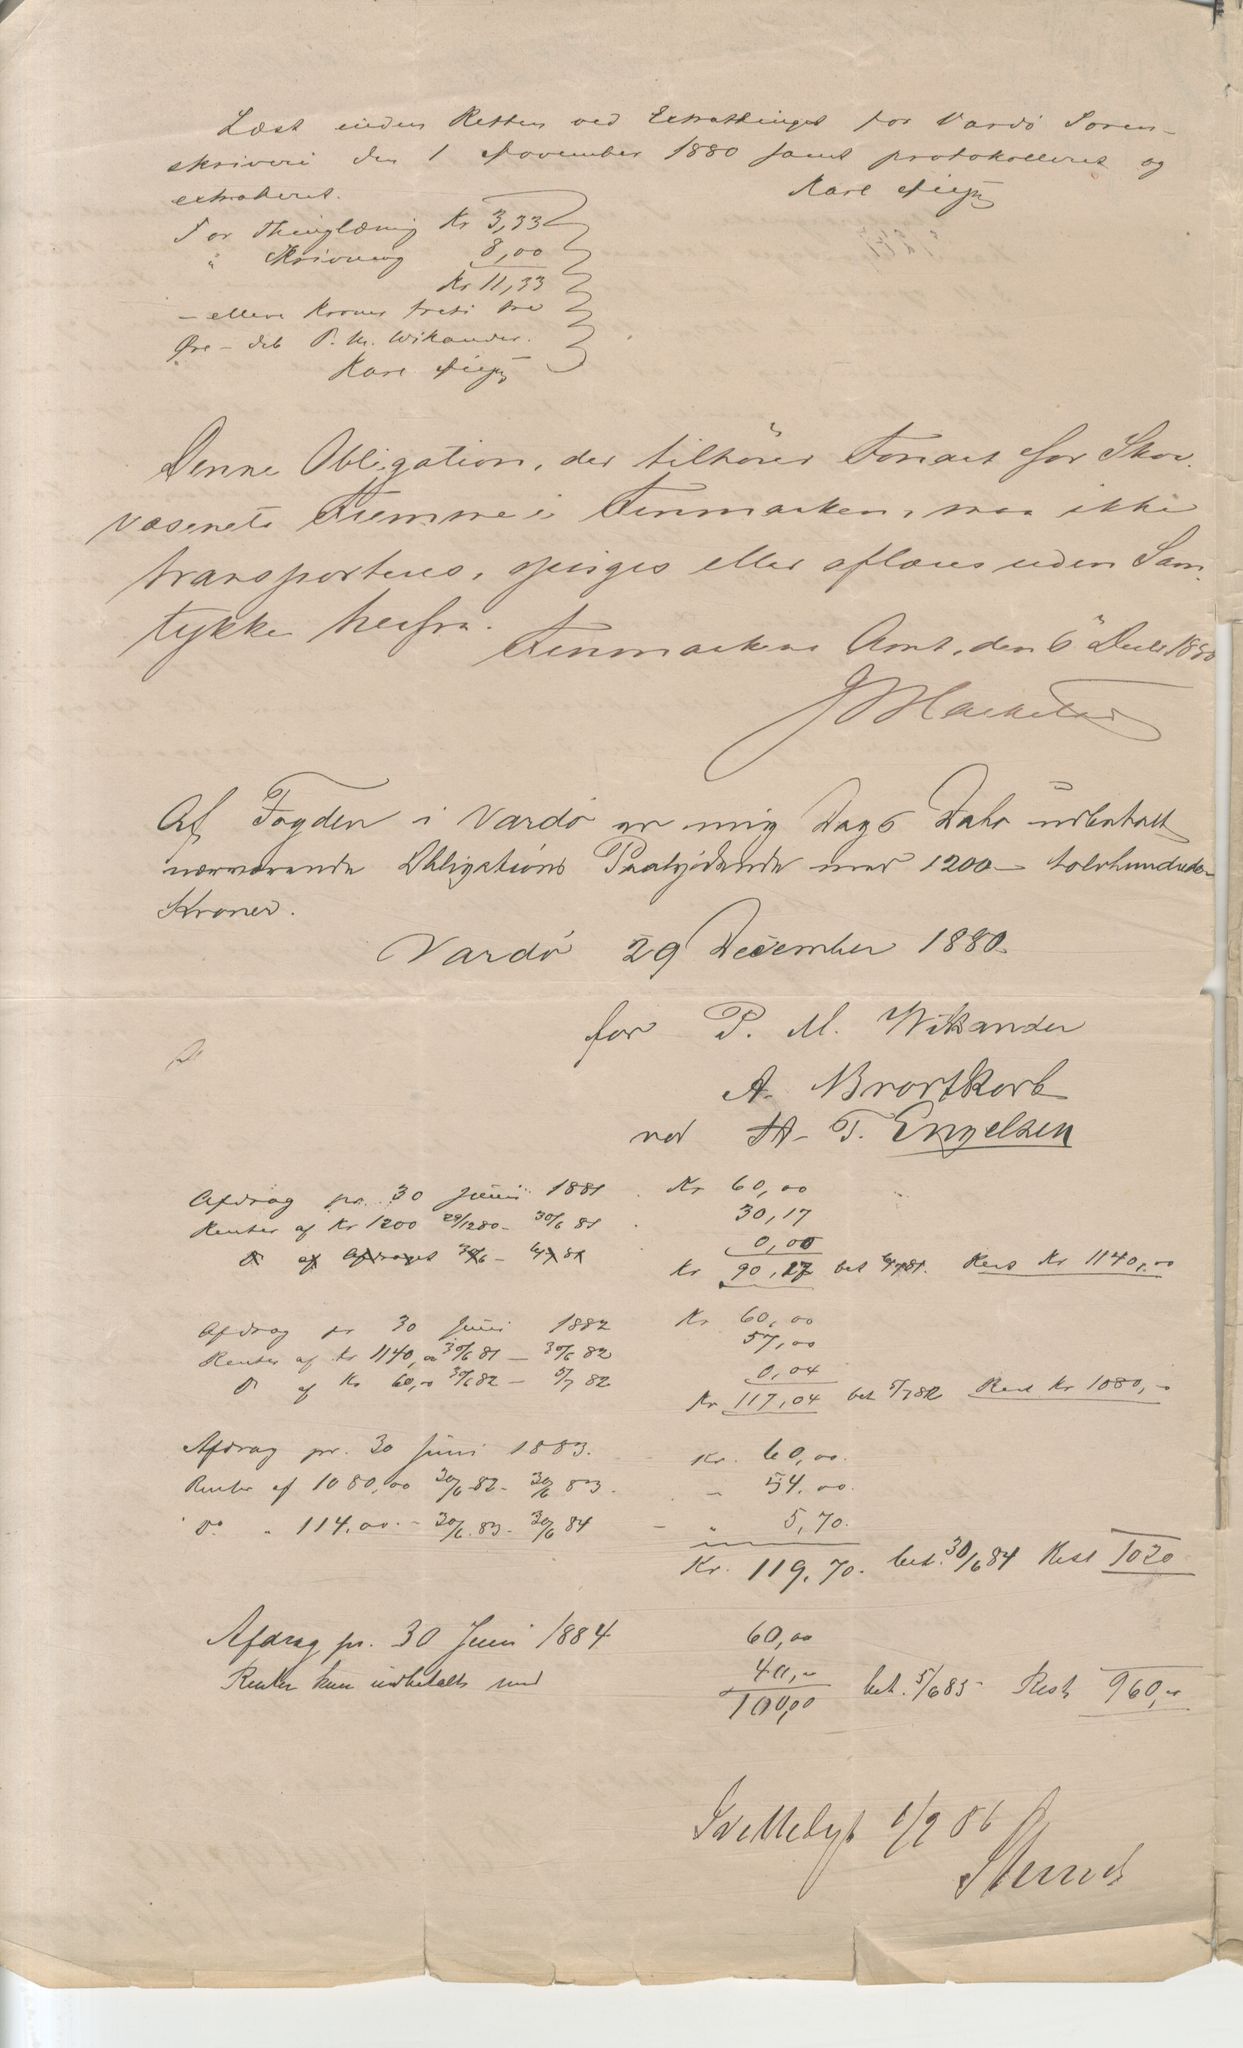 Læst inden Retten ved Extrathinget for Vardö Soren-
skriveri den 1 November 1880 samt protokolleret og
extraheret. Karl
For Thinglæsning Kr 3,33
" Skrivning 8,00
Kr 11,33
- elleve Kroner treti tre
Øre - deb P. M. Wikander.
Karl
Denne Obligation, der tilhører Fondet for Skov-
væsenets Fremme i Finmarken, maa ikke
transporteres, opsiges eller aflæses uden Sam-
tykke herfra.
Finmarkens Amt, den 6 Decbr 1880
Af Fogden i Vardö er mig Dags Dato udbetalt
nærværende Obligations Paalydende med 1200 - tolvhundrede-
Kroner.
Vardö 29 December 1880.
for P. M. Wikander
A. Brodtkorb
ved H. T. Engelsen
Afdrag pr. 30 Juni 1881 Kr 60,00
Renter af Kr 1200 29/12 80 - 30/6 81 30,17
Do af Afdraget 30/6 - 81 0,00
Kr 90,17 bet 81. Rest Kr 1140,00
Afdrag pr 30 Juni 1882 Kr 60,00
Renter af Kr 1140,00 30/6 81 - 30/6 82 57,00
Do af Kr 60,00 30/6 82 - 5/7 82 0,04
Kr 117,04 bet 5/7 82 Rest Kr 1080,-
Afdrag pr. 30 Juni 1883. Kr. 60,00.
Renter af 1080,00 30/6 82 - 30/6 83. - 54,00.
Do " 114,00 - 30/6 83 - 30/6 84 - " 5,70.
Kr. 119,70. bet. 30/6 84 Rest 1020
Afdrag pr. 30 Juni 1884 60,00
Renter kun indbetalt med 40,-
100,00 bet. 5/6 85 Rest 960,-
1/2 86